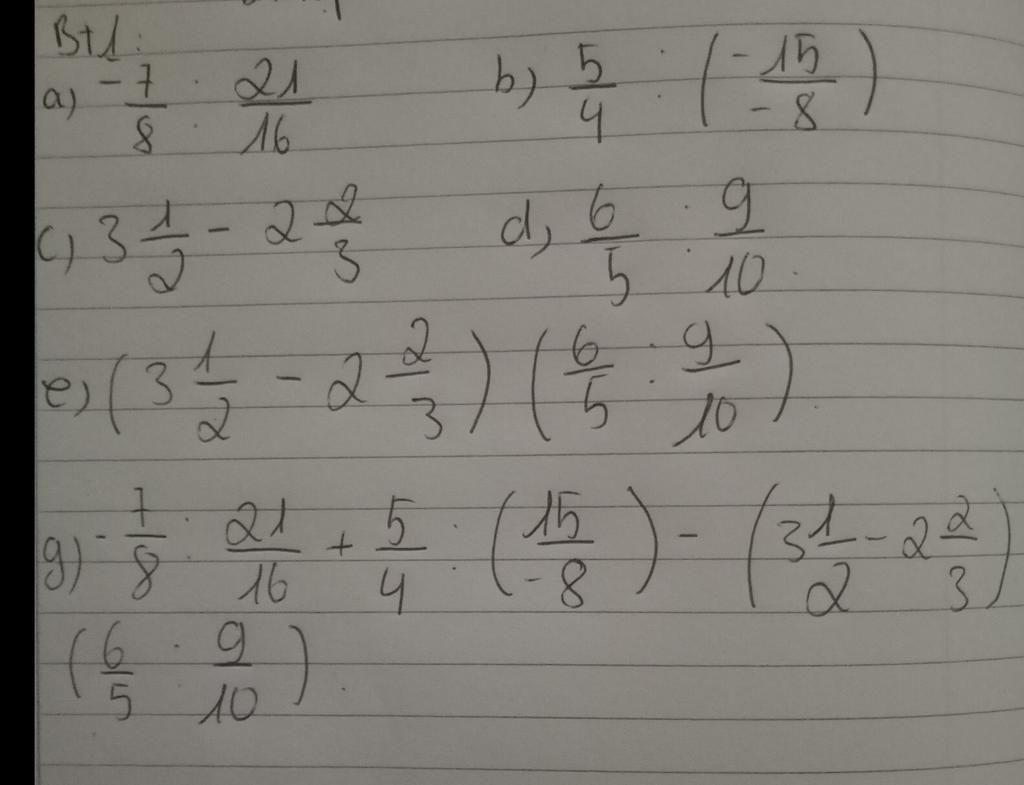 Bt1:
a) -7/8 : 21/16 b) 5/4 : (-15/-8)
c) 3 1/2 - 2 2/3 d) 6/5 : 9/10
e) (3 1/2 - 2 2/3) (6/5 : 9/10)
g) -7/8 : 21/16 + 5/4 : (15/-8) - (3 1/2 - 2 2/3)
(6/5 : 9/10).